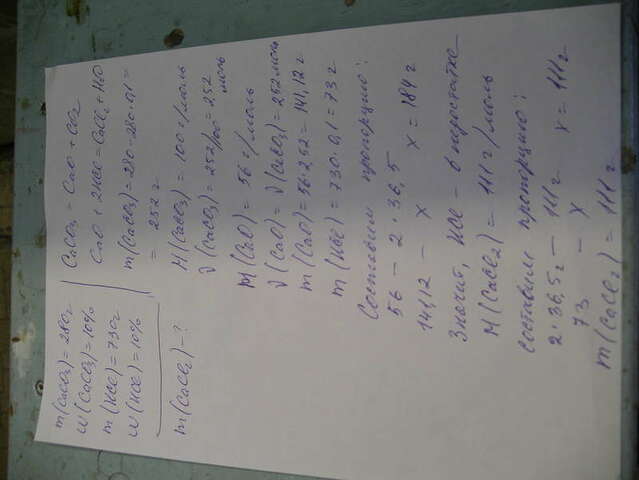 m(CaCO₃) = 280г
W(CaCO₃) = 10%
m(HCl) = 730г
W(HCl) = 10%
m(CaCl₂) - ?
CaCO₃ = CaO + CO₂
CaO + 2HCl = CaCl₂ + H₂O
m(CaCO₃) = 280 - 280·0,1 =
= 252 г
M(CaCO₃) = 100 г/моль
ν(CaCO₃) = 252/100 = 2,52
моль
M(CaO) = 56 г/моль
ν(CaO) = ν(CaCO₃) = 2,52 моль
m(CaO) = 56·2,52 = 141,12 г
m(HCl) = 730·0,1 = 73 г
Составим пропорцию:
56 — 2·36,5
14,12 — x x = 184 г
Значит, HCl - в недостатке
M(CaCl₂) = 111 г/моль
составим пропорцию:
2·36,5г — 111 г
73 — x x = 111 г
m(CaCl₂) = 111 г